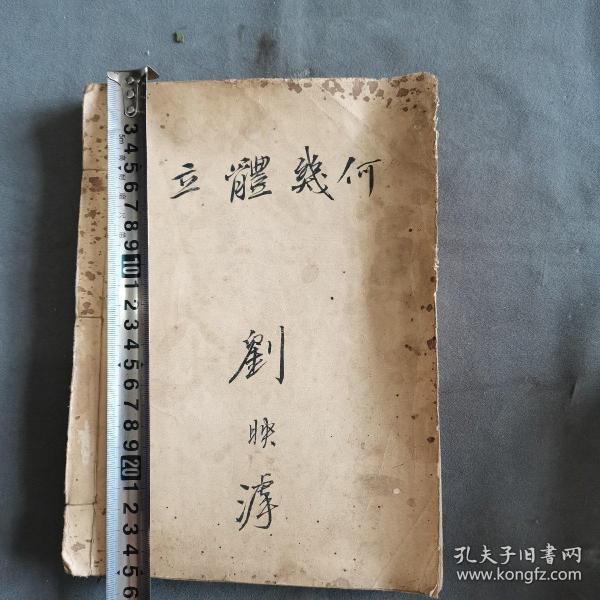 立體幾何
劉
映
3 4 5 6 7 8 9 10 1 2 3 4 5 6 7 8 9 20 1 2 3 4 5 6
5m
孔夫子旧書网
www.kongfz.com